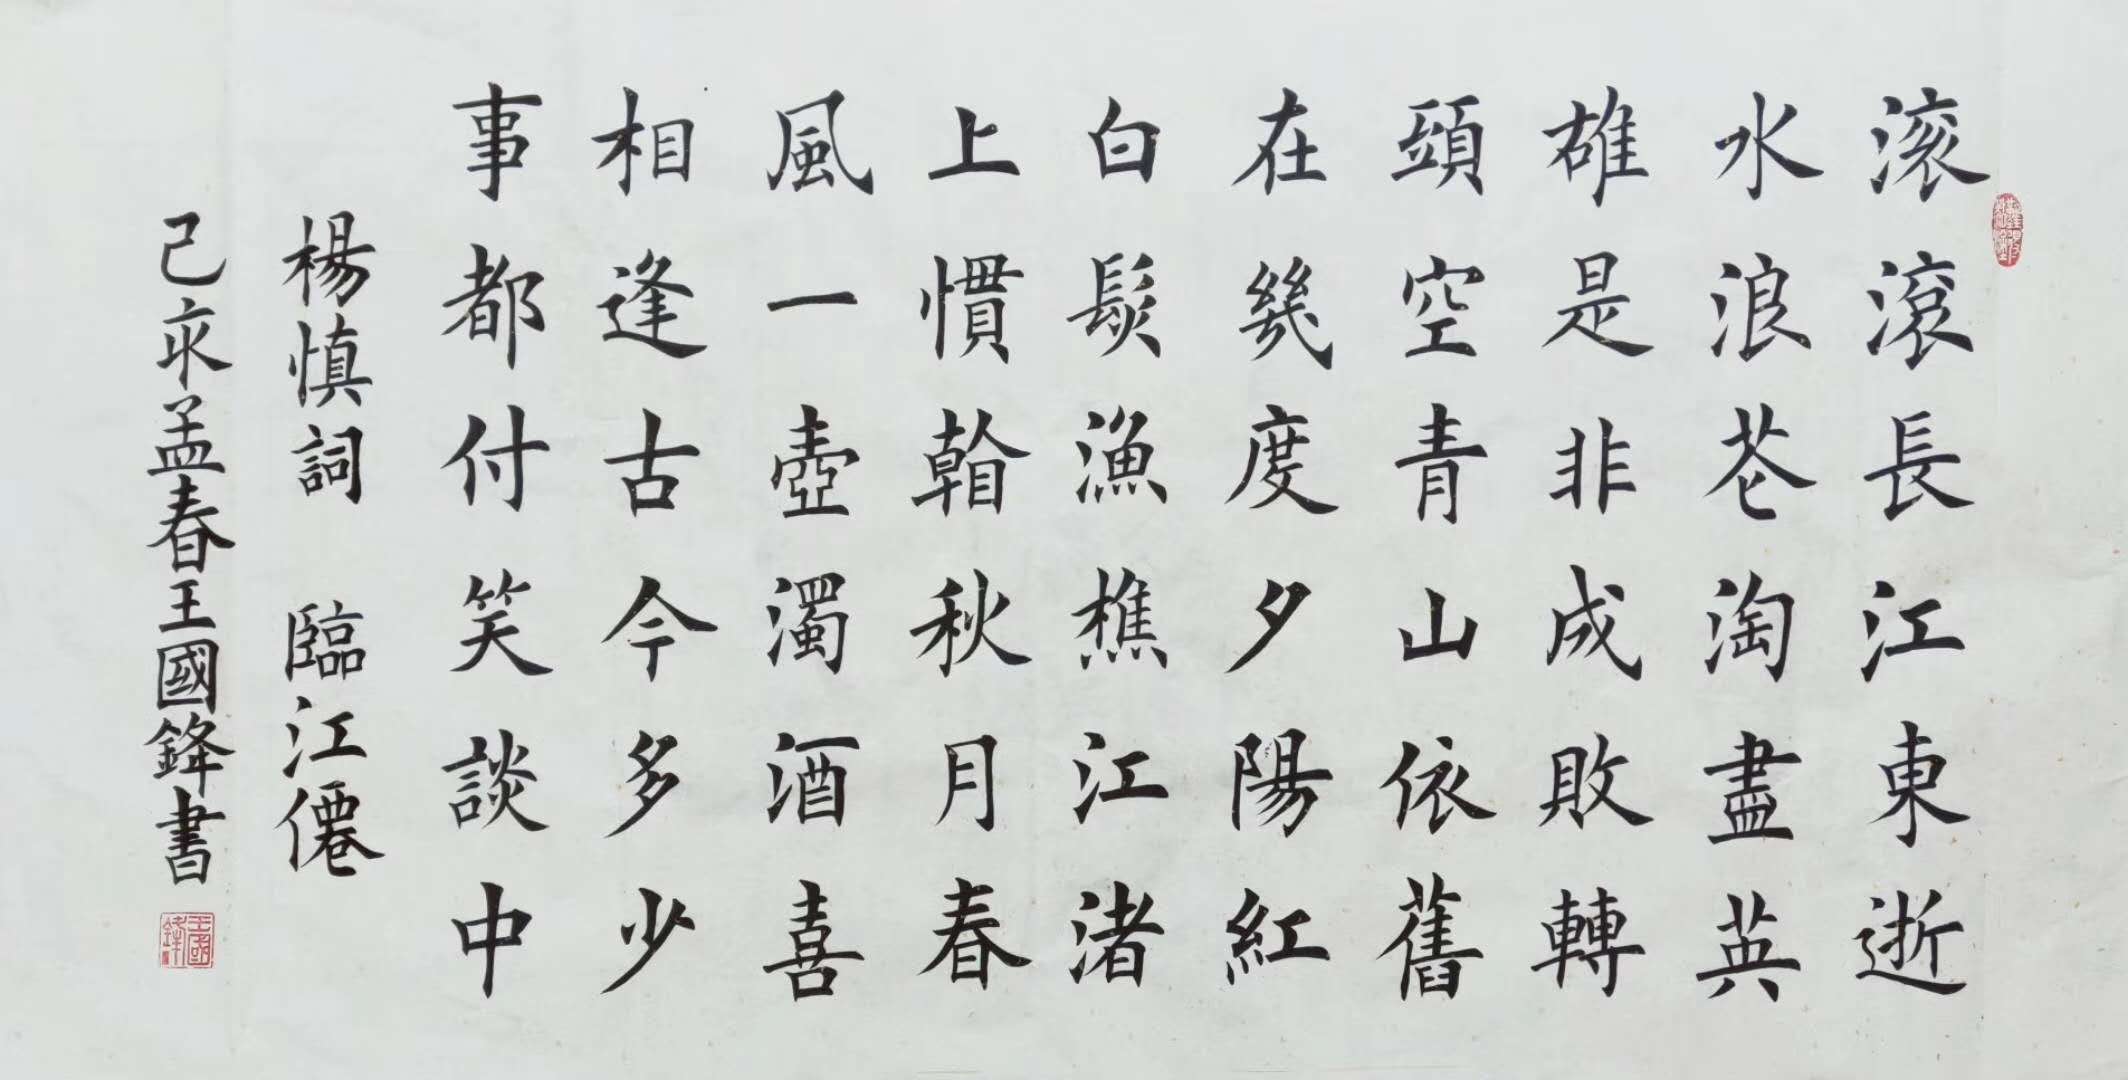 滚滾長江東逝
水浪花淘盡英
雄是非成敗轉
頭空青山依舊
在幾度夕陽紅
白髮漁樵江渚
上慣看秋月春
風一壺濁酒喜
相逢古今多少
事都付笑談中
楊慎詞 臨江僊
己亥孟春王國鋒書
王國鋒